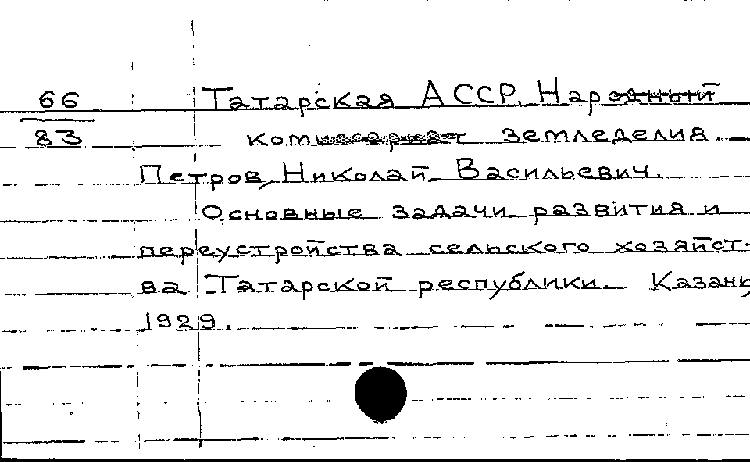 66 Татарская АССР. Народный
83 комиссариат земледелия.
Петров, Николай Васильевич.
Основные задачи развития и
переустройства сельского хозяйст-
ва Татарской республики. Казань,
1929.